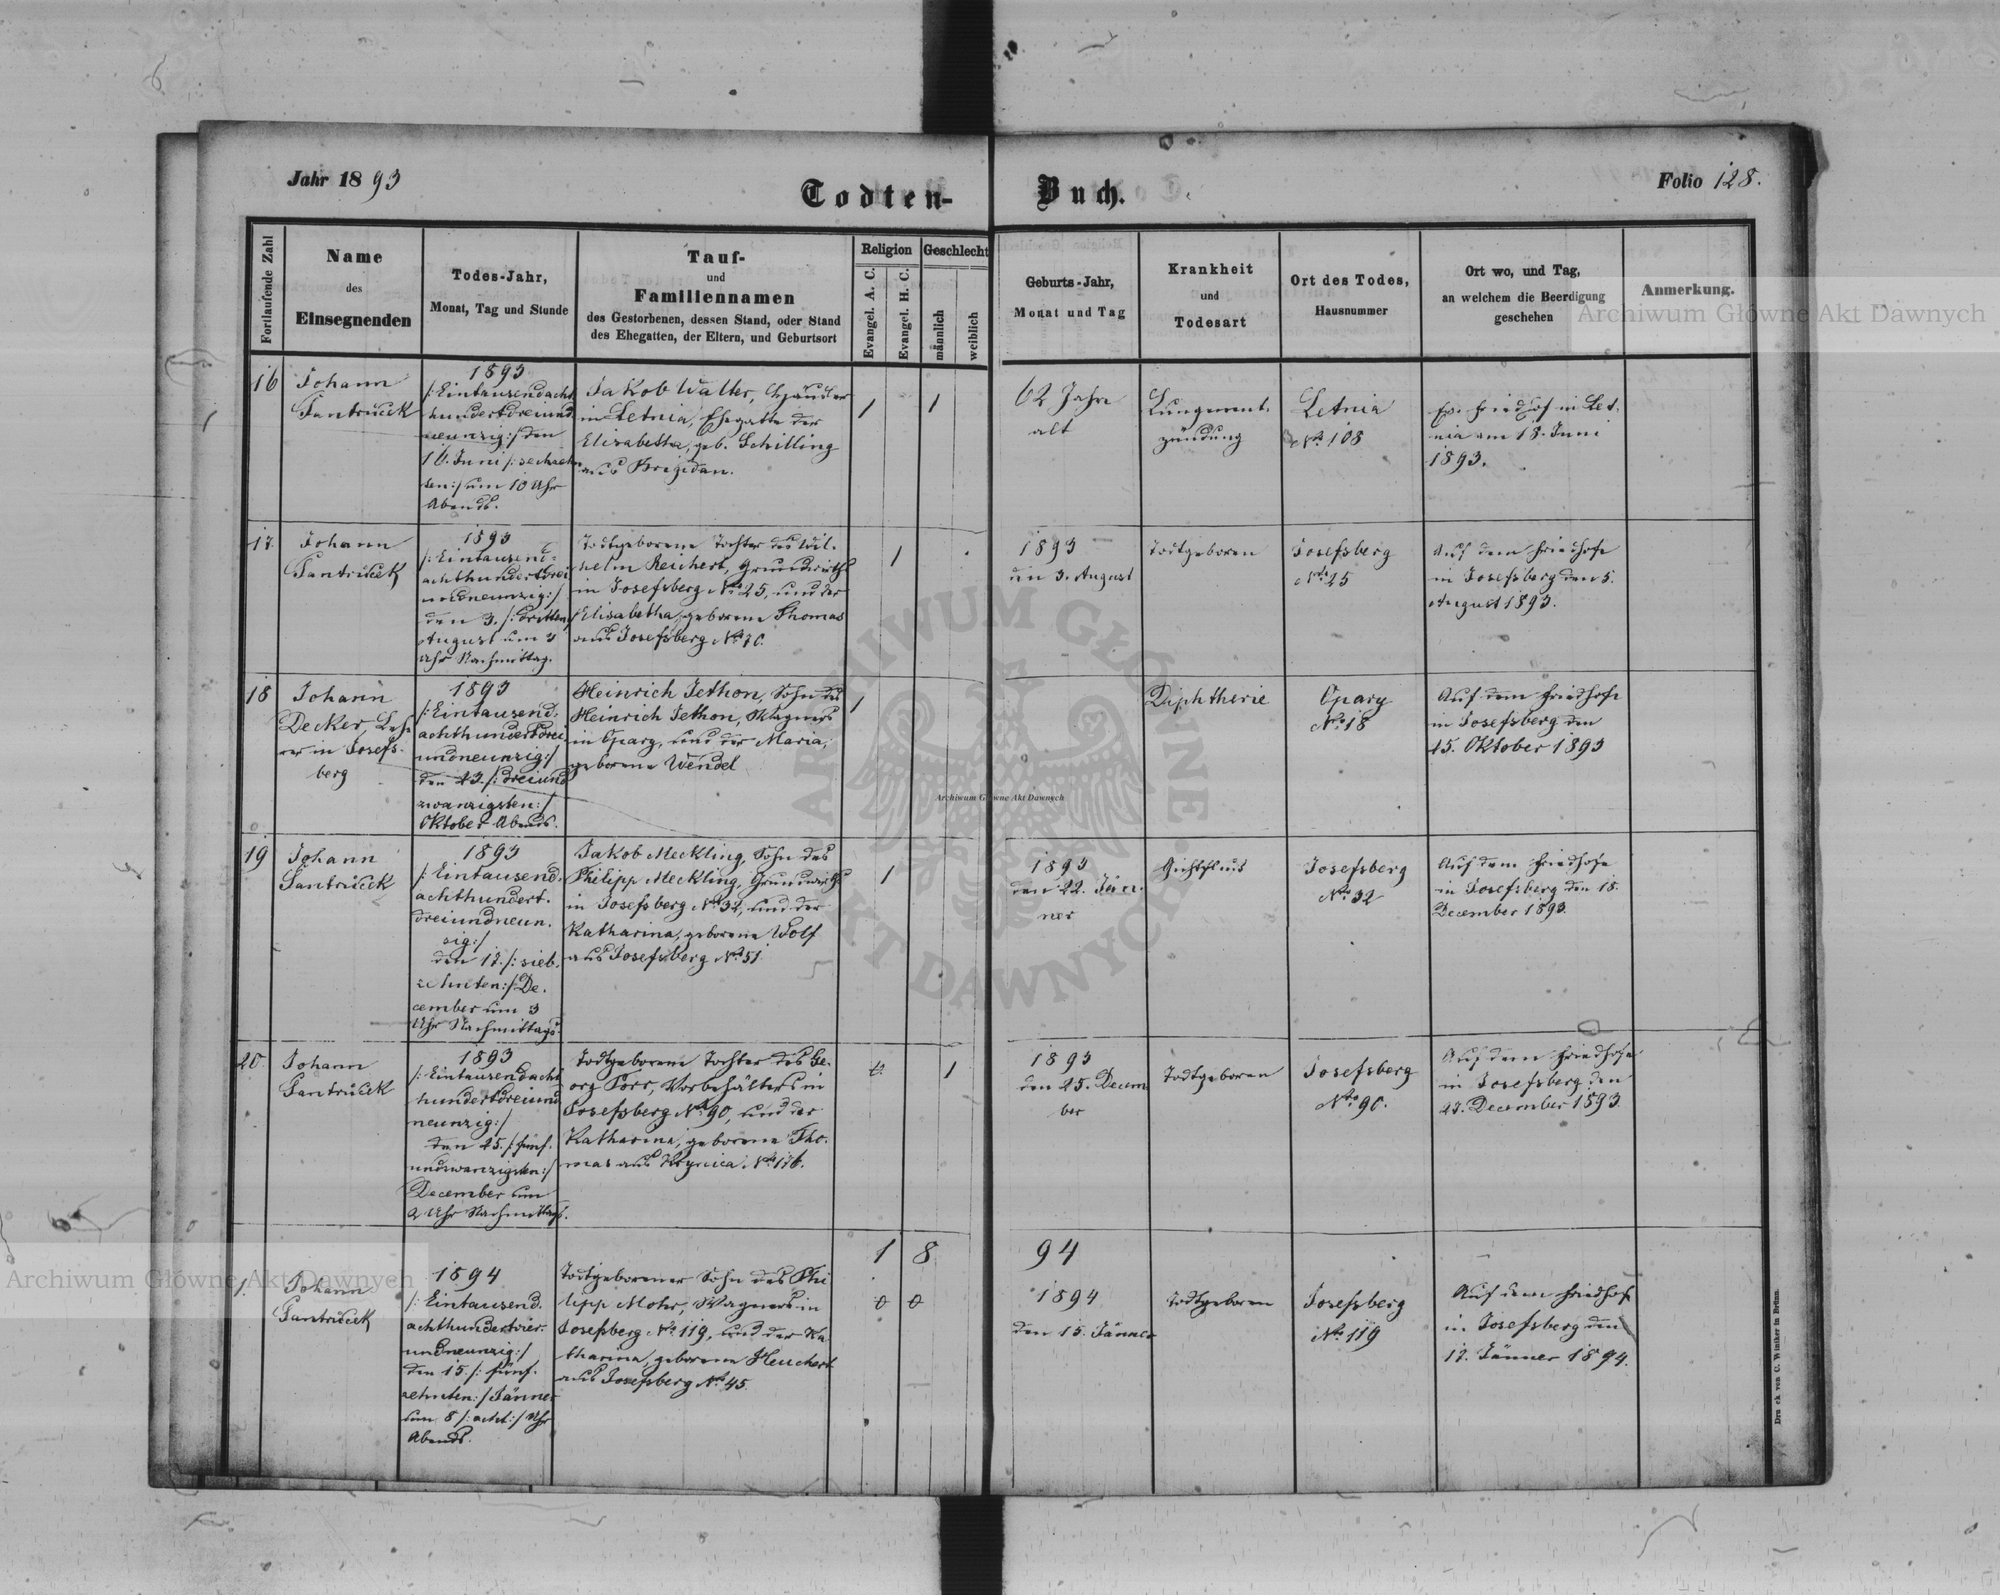 Jahr 1893
Todten-Buch.
Folio 128.
Fortlaufende Zahl
Name
des
Einsegnenden
Todes-Jahr,
Monat, Tag und Stunde
Tauf-
und
Familiennamen
des Gestorbenen, dessen Stand, oder Stand
des Ehegatten, der Eltern, und Geburtsort
Religion
Evangel. A. C.
Evangel. H. C.
Geschlecht
männlich
weiblich
Geburts-Jahr,
Monat und Tag
Krankheit
und
Todesart
Ort des Todes,
Hausnummer
Ort wo, und Tag,
an welchem die Beerdigung
geschehen
Anmerkung.
16
Johann
Santrůček
1893
/:Eintausendacht
hundertdreiund
neunzig:/ den
16. Juni /:sechzehn
ten:/ um 10 Uhr
Abends.
Jakob Walter, Häusler
in Letnia, Ehegatte der
Elisabetha, geb. Schilling
aus Brigidau.
1
1
62 Jahre
alt
Lungenent.
zündung
Letnia
No 108
Ev. Friedhof in Let.
nia am 18. Juni
1893.
17.
Johann
Santrůček
1893
/:Eintausend.
achthundertdrei
undneunzig:/
den 3. /:dritten:/
August um 3
Uhr Nachmittag.
Todtgeborene Tochter des Wil.
helm Reichert, Grundwirths
in Josefsberg No 25, und der
Elisabetha, geborene Thomas
aus Josefsberg No 70.
1
1893
den 3. August
Todtgeboren
Josefsberg
No 25
Auf dem Friedhofe
in Josefsberg den 5.
August 1893.
18
Johann
Decker, Leh
rer in Josefs.
berg
1893
/:Eintausend.
achthundertdrei
undneunzig:/
den 23. /:dreiund
zwanzigsten:/
Oktober Abends.
Heinrich Jethon, Sohn des
Heinrich Jethon, Wagners
in Opary, und der Maria,
geborene Wendel
1
Diphtherie
Opary
No 18
Auf dem Friedhofe
in Josefsberg den
25. Oktober 1893
19
Johann
Santrůček
1893
/:Eintausend.
achthundert.
dreiundneun.
zig:/
den 17. /:sieb.
zehnten:/ De.
cember um 3
Uhr Nachmittags.
Jakob Meckling, Sohn des
Philipp Meckling, Grundwirths
in Josefsberg No 32, und der
Katharina, geborene Wolf
aus Josefsberg No 51
1
1893
den 22. Jän.
ner
Josefsberg
No 32
Auf dem Friedhofe
in Josefsberg den 18.
December 1893.
20
Johann
Santrůček
1893
/:Eintausendacht
hundertdreiund
neunzig:/
den 25. /:fünf.
undzwanzigsten:/
December um
2 Uhr Nachmittags.
Todtgeborene Tochter des Ge.
org Porr, Vorbehälters in
Josefsberg No 90, und der
Katharina, geborene Tho.
mas aus Krynica. No 176.
1
1893
den 25. Decem
ber
Todtgeboren
Josefsberg
No 90.
Auf dem Friedhofe
in Josefsberg den
27. December 1893.
1 8 94
1.
Johann
Santrůček
1894
/:Eintausend.
achthundertvier.
undneunzig:/
den 15. /:fünf.
zehnten:/ Jänner
um 8 /:acht:/ Uhr
Abends.
Todtgeborener Sohn des Phi
lipp Mohr, Wagners in
Josefsberg No 119, und der Ka
tharina, geborene Heuchert
aus Josefsberg No 45.
0 0
1894
den 15. Jänner
Todtgeboren
Josefsberg
No 119
Auf dem Friedhof
in Josefsberg den
17. Jänner 1894.
Druck von C. Winiker in Brünn.
Archiwum Główne Akt Dawnych
Archiwum Główne Akt Dawnych
Archiwum Główne Akt Dawnych
ARCHIWUM GŁÓWNE AKT DAWNYCH